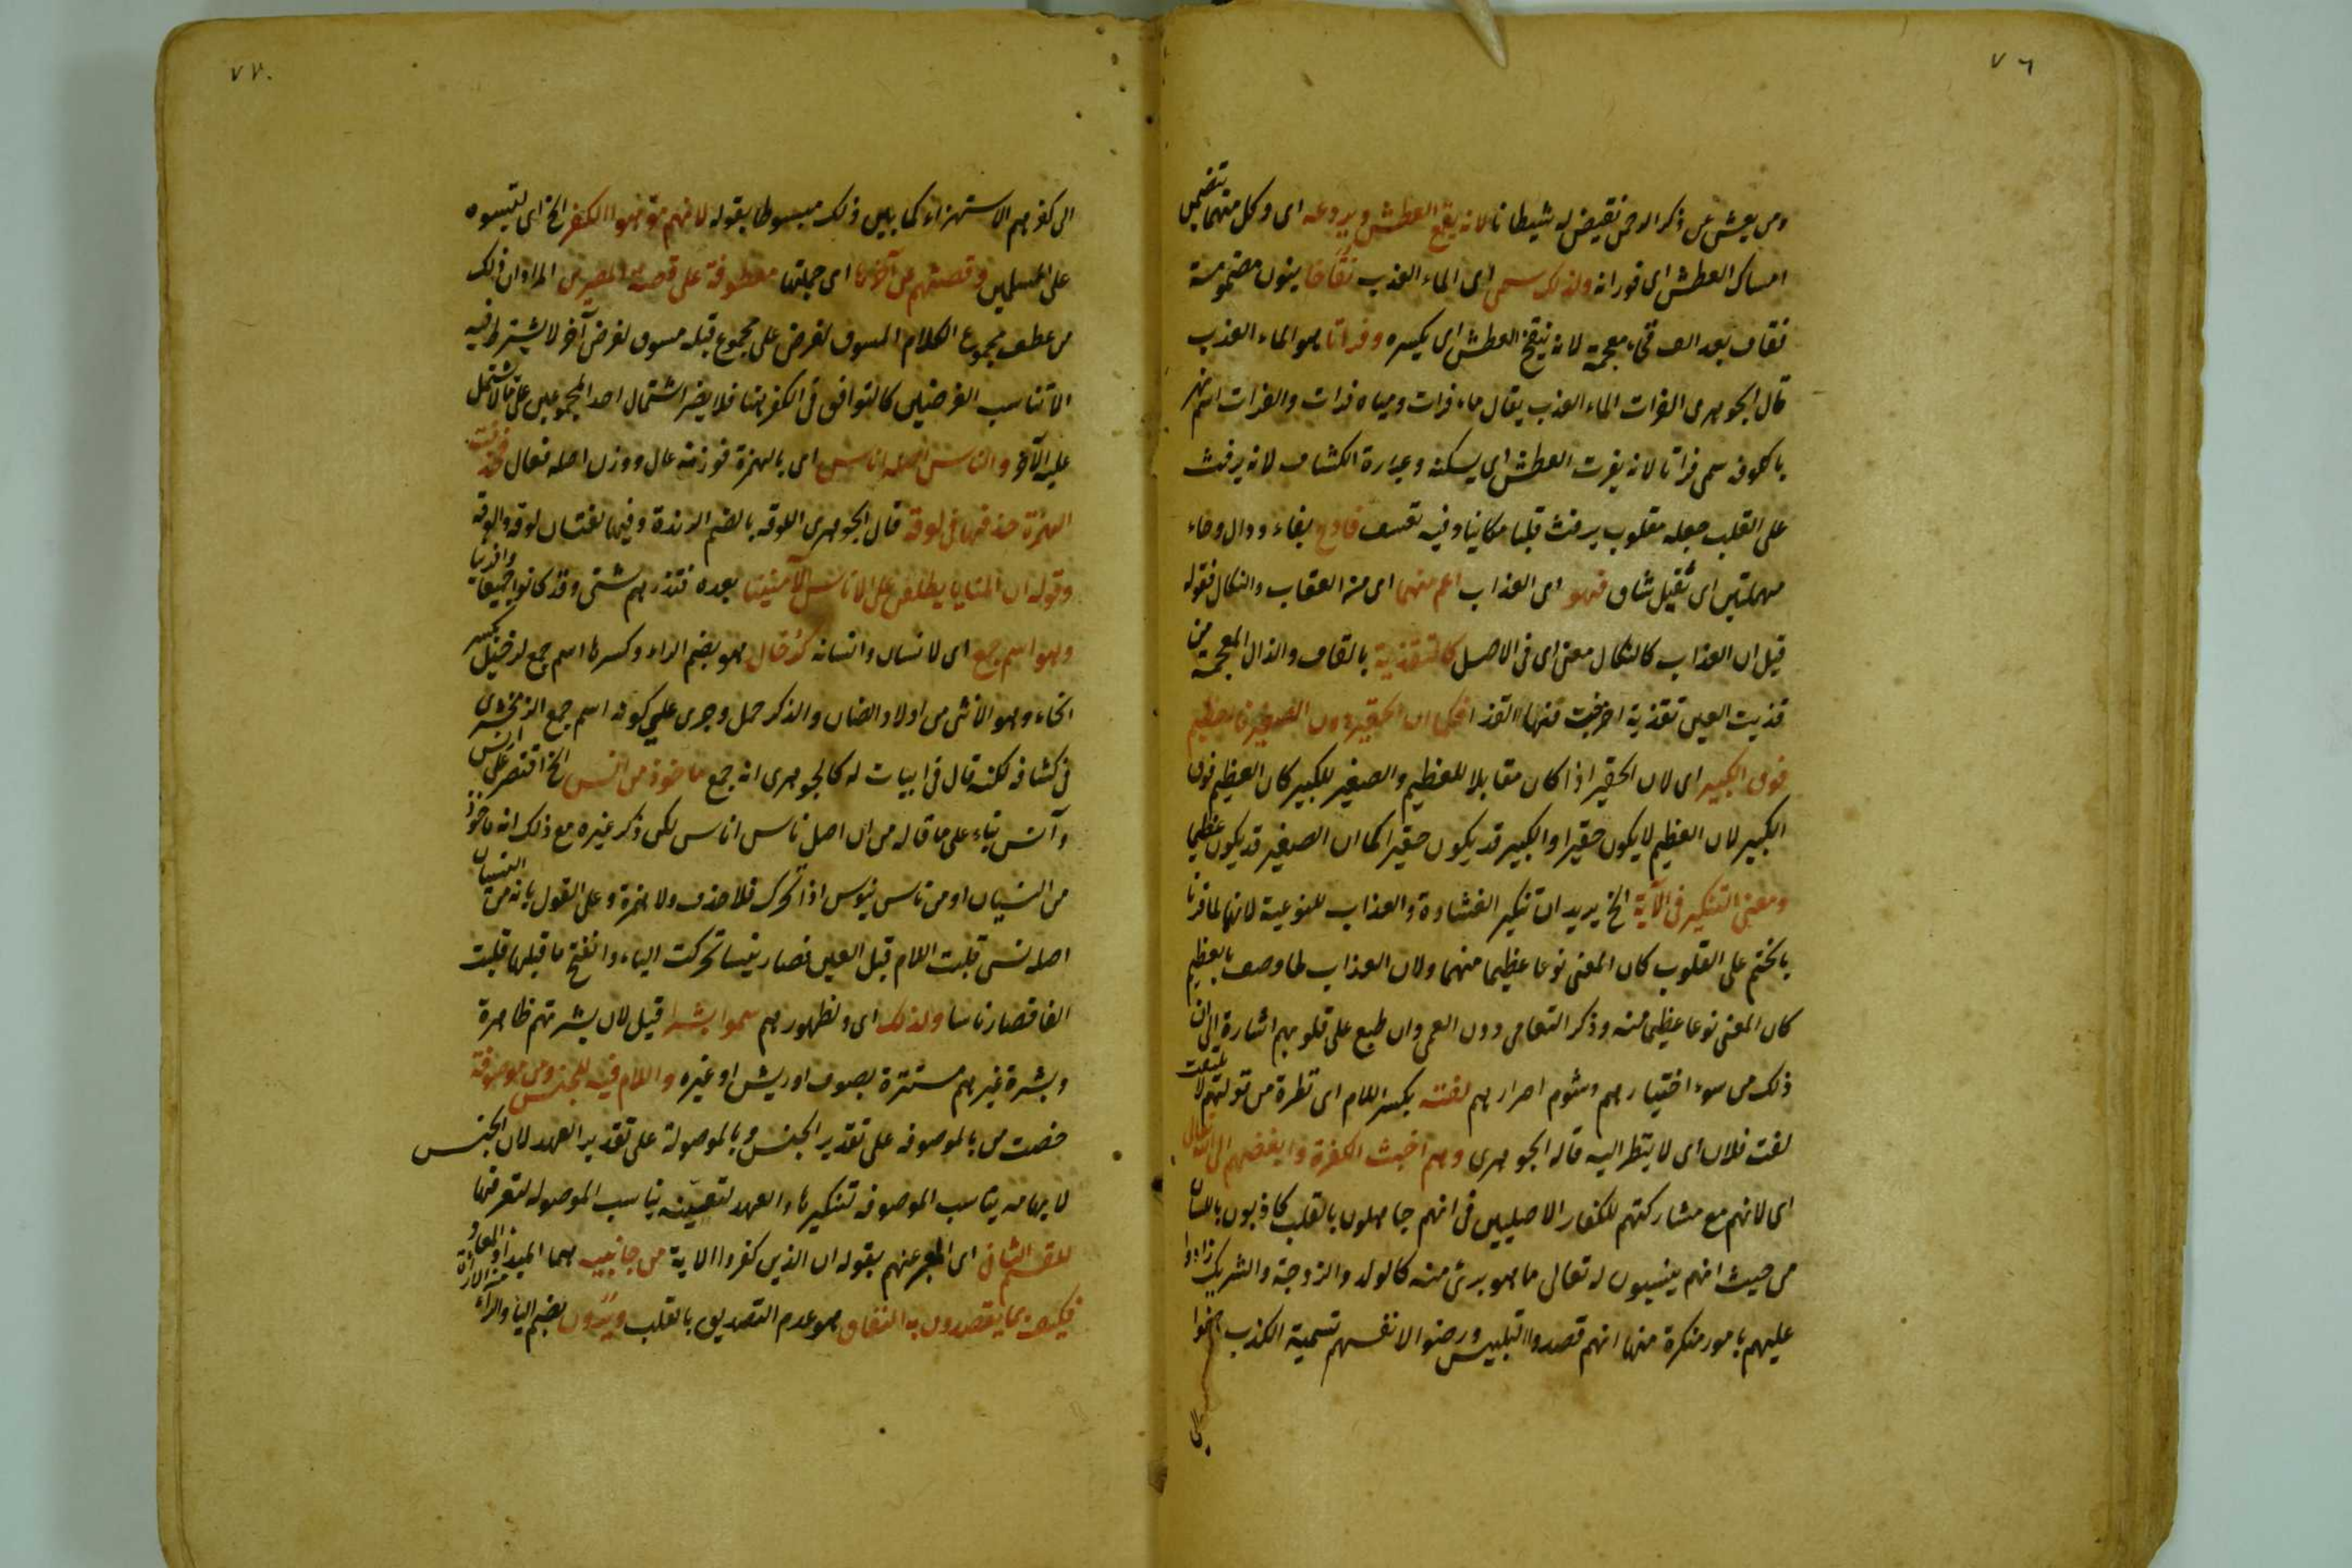 ٧٦
ومن يعش عن ذكر الرحمن نقيض له شيطانا لانه يقمع العطش ويردعه اى وكل منهما يتضمن
امساك العطش اى فورانه ولذلك سمى اى الماء العذب نقاخا بنون مضمومة
فقاف بعد الف فخاء معجمة لانه ينقخ العطش اى يكسره وفراتا هو الماء العذب
قال الجوهرى الفرات الماء العذب يقال ماء فرات ومياه فرات والفرات اسم نهر
بالكوفة سمى فراتا لانه يفرت العطش اى يسكنه وعبارة الكشاف لانه يرفث
على القلب جعله مقلوب يرفث قلبا مكانيا وفيه تعسف فادح بفاء ودال وحاء
مهملتين اى ثقيل شاق فهو اى العذاب اعم منهما اى من العقاب والنكال فقوله
قيل ان العذاب كالنكال معنى اى فى الاصل كالتقذية بالقاف والذال المعجمة من
قذيت العين تقذية اخرجت منها القذا فكما ان الحقير دون الصغير فالعظيم
فوق الكبير اى لان الحقير اذا كان مقابلا للعظيم والصغير للكبير كان العظيم فوق
الكبير لان العظيم لا يكون حقيرا والكبير قد يكون حقيرا كما ان الصغير قد يكون عظيما
ومعنى التنكير فى الآية الخ يريد ان تنكير الغشاوة والعذاب للنوعية لانها لما قرنا
بالختم على القلوب كان المعنى نوعا عظيما منهما ولان العذاب لما وصف بالعظيم
كان المعنى نوعا عظيما منه وذكر التعامى دون العمى وان طبع على قلوبهم اشارة الى ان
ذلك من سوء اختيارهم وشوم اصرارهم لفته بكسر اللام اى نظرة من قولهم لا يلتفت
لفت فلان اى لا ينظر اليه قاله الجوهرى وهم اخبث الكفرة وابغضهم الى الله تعالى
اى لانهم مع مشاركتهم للكفار الاصليين فى انهم جاهلون بالقلب كاذبون باللسان
من حيث انهم ينسبون له تعالى ما هو برئ منه كالولد والزوجة والشريك زادوا
عليهم بامور منكرة منها انهم قصدوا التلبيس ورضوا لانفسهم تسمية الكذب
٧٧
الى كفرهم الاستهزاء كما يابين ذلك مبسوطا بقوله لانهم موهوا الكفر الخ اى لبسوه
على المسلمين وقصتهم عن آخرها اى جملتها معطوفة على قصة المصرين المراد ان ذلك
من عطف مجموع الكلام المسوق لغرض على مجموع قبله مسوق لغرض آخر لا يشترط فيه
الا تناسب الغرضين كالتوافق فى الكفر هنا فلا يضر اشتمال احد المجموعين على ما لا يشتمل
عليه الآخر والناس اصله اناس اى بالهمزة فوزنه عال ووزن اصله فعال فحذفت
الهمزة حذفها فى لوقة قال الجوهرى اللوقة بالضم الزبدة وفيها لغتان لوقة والوقة
وقوله ان المنايا يطلعن على الاناس الآمنينا بعده فتذرهم شتى وقد كانوا جميعا وافرينا
وهو اسم جمع اى لانسان وانسانة كرخال هو بضم الراء وكسرها اسم جمع لرخيل بكسر
الخاء وهو الانثى من اولاد الضأن والذكر حمل وجرى على كونه اسم جمع الزمخشرى
فى كشافه لكنه قال فى ابيات له كالجوهرى انه جمع ماخوذ من انس الخ اقتصر على انس
وآنس بناء على ما قاله من ان اصل ناس اناس لكن ذكر غيره مع ذلك انه ماخوذ
من النسيان او من ناس ينوس اذا تحرك فلا حذف ولا همزة وعلى القول بانه من النسيان
اصله نسى قلبت اللام قبل العين فصار نيسا تحركت الياء وانفتح ما قبلها قلبت
الفا فصار ناسا ولذلك اى ولظهورهم سموا بشرا قيل لان بشرتهم ظاهرة
وبشرة غيرهم مستترة بصوف او ريش او غيره واللام فيه للجنس ومن موصوفة
خصت من بالموصوفة على تقدير الجنس وبالموصولة على تقدير العهد لان الجنس
لابهامه يناسب الموصوفة لتنكيرها والعهد لتعينه يناسب الموصولة لتعرفها
للقسم الثانى اى المعبر عنهم بقوله ان الذين كفروا الاية من جانبيه هما المبدأ والمعاد
فكيف بما يقصدون به النفاق هو عدم التصديق بالقلب ويرون بضم اليا والراء